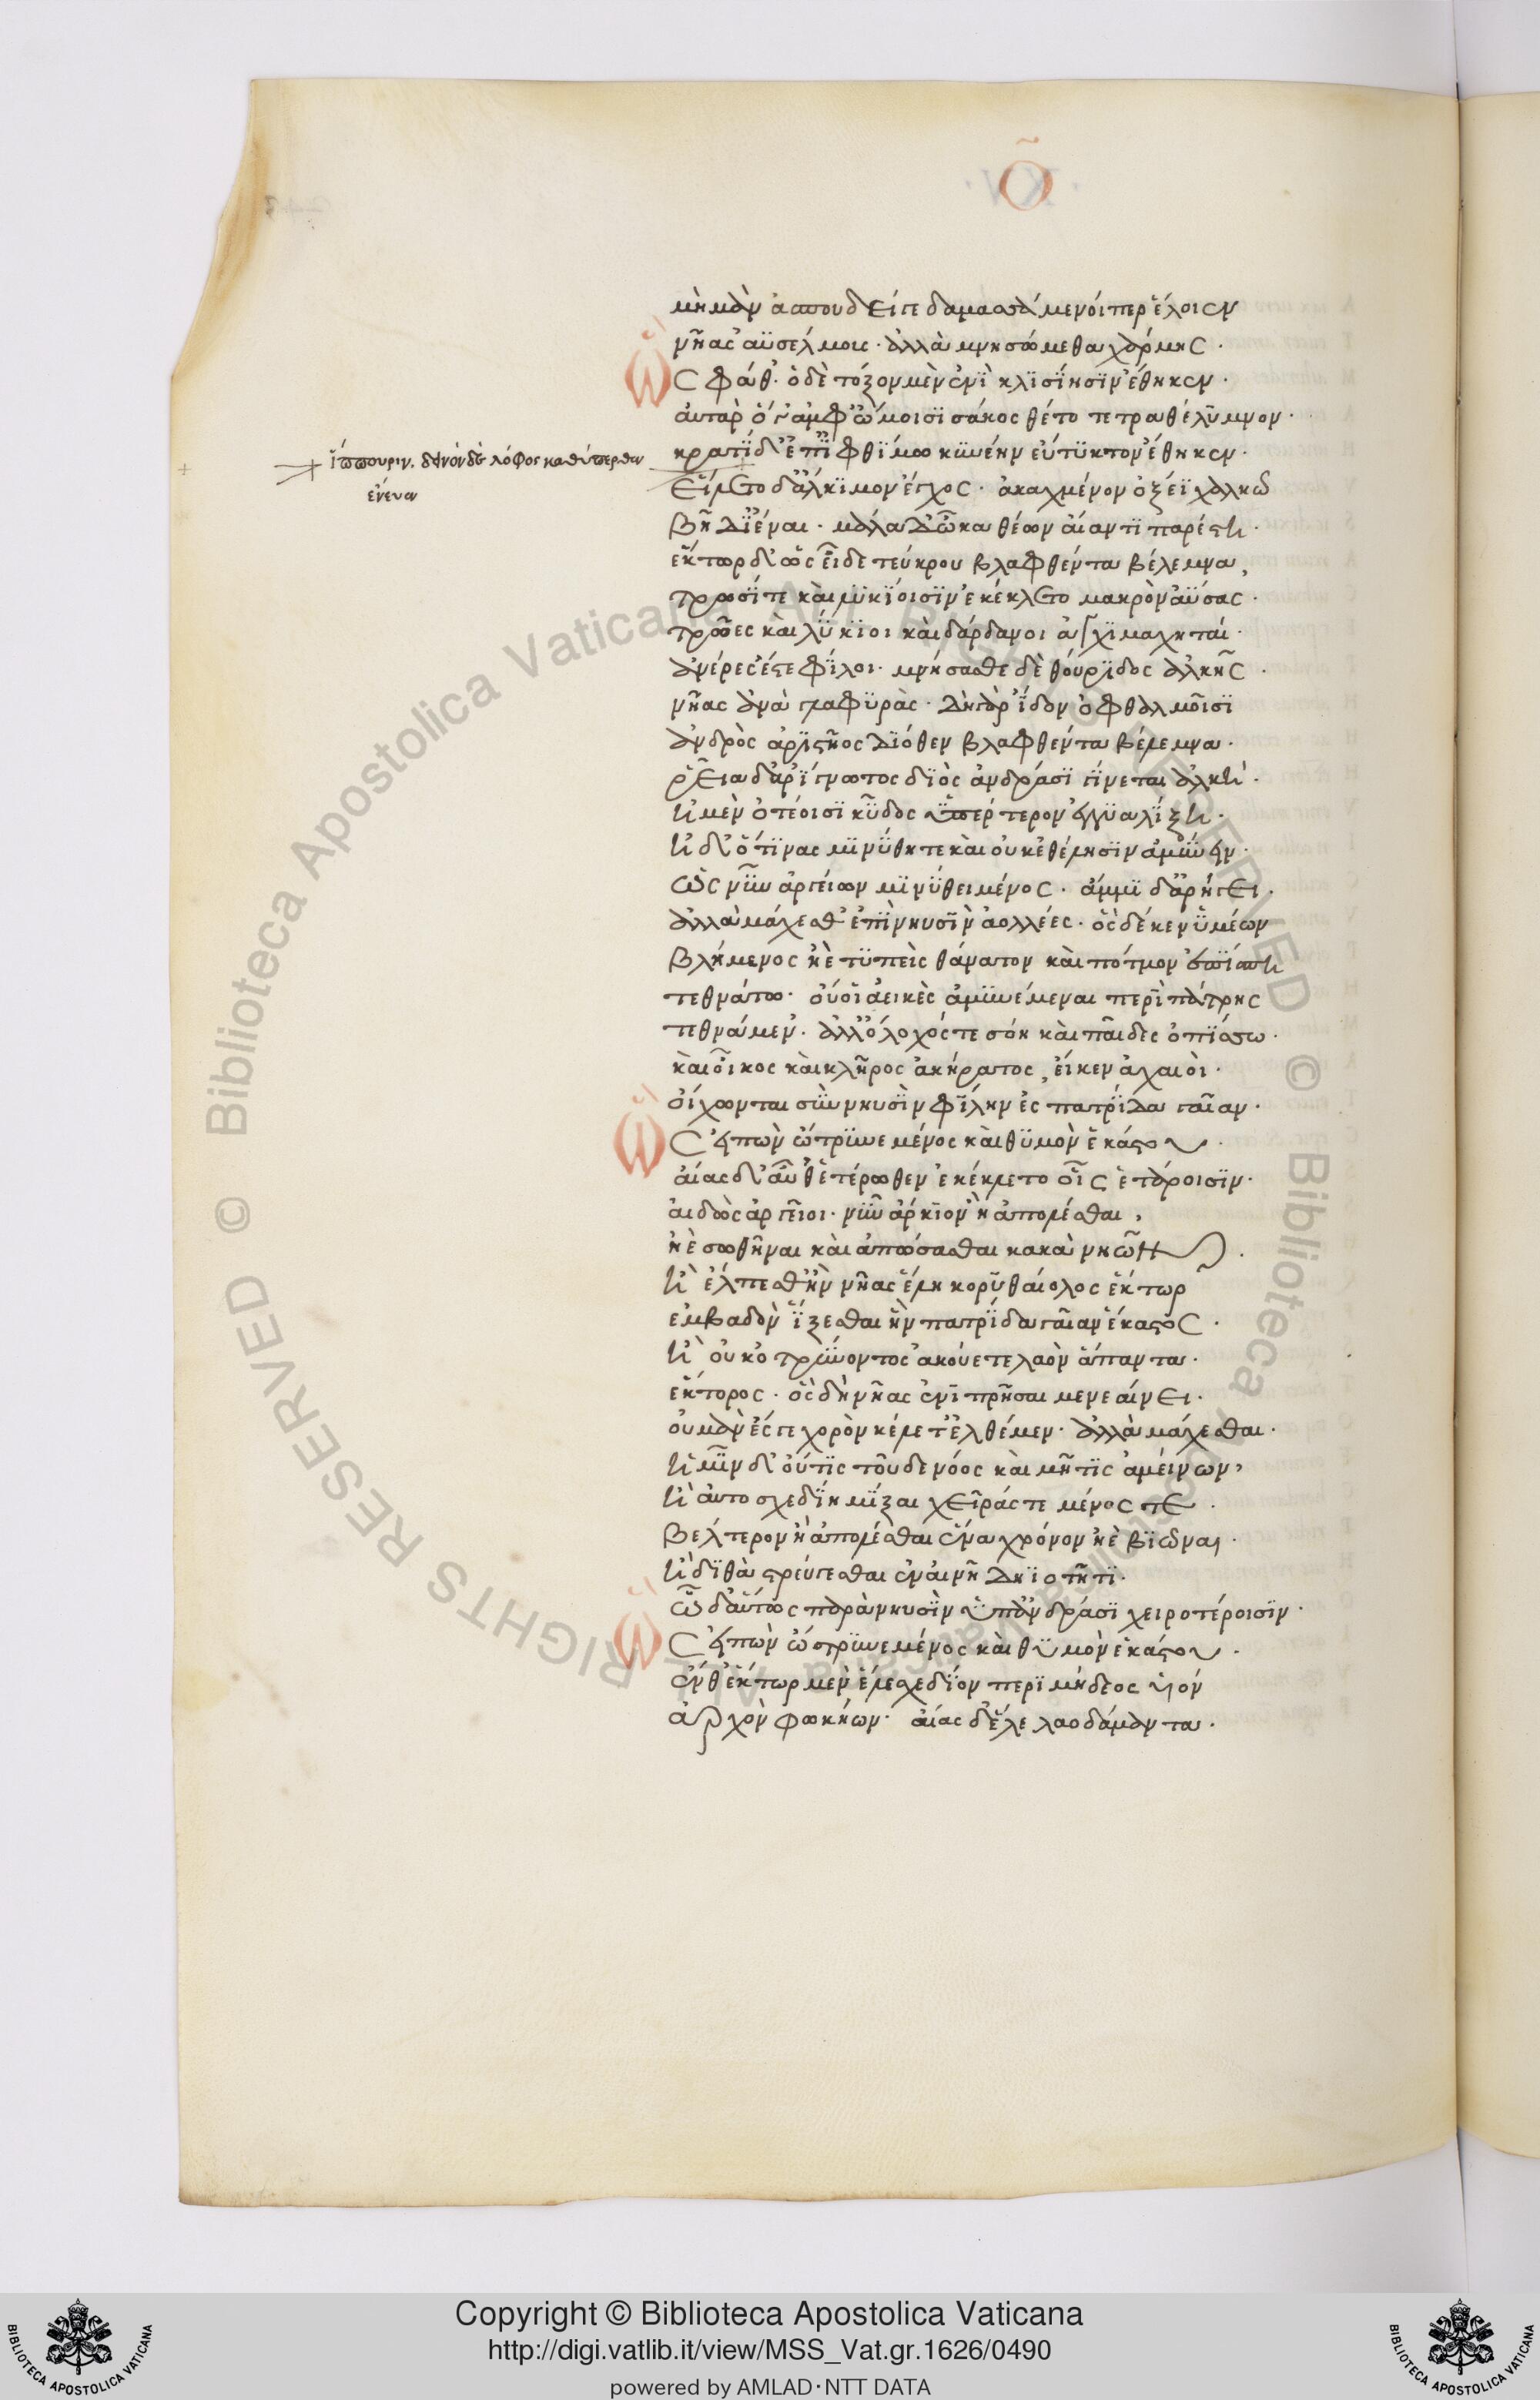 Ο
μὴ μὰν ἀσπουδεί γε δαμασσάμενοί περ ἕλοιεν
νῆας ἐϋσέλμους· ἀλλὰ μνησώμεθα χάρμης·
Ὣς φάθ· ὁ δὲ τόξον μὲν ἐνὶ κλισίῃσιν ἔθηκεν·
ἀυτὰρ ὅγ ἀμφ ὤμοισι σάκος θέτο τετραθέλυμνον·
κρατὶ δ' ἐπ ἰφθίμω κυνέην εὔτυκτον ἔθηκεν·
ἵππουριν. δεινὸν δὲ λόφος καθύπερθεν
ἔνευεν
εἵλετο δ ἄλκιμον ἔγχος· ἀκαχμένον ὀξέϊ χαλκῶ
βῆ δ ἰέναι· μάλα δ ὦκα θέων ἄιαντι παρέστη·
ἕκτωρ δ' ὡς εἶδε τεύκρου βλαφθέντα βέλεμνα,
τρωσί τε καὶ λυκίοισιν ἐκέκλετο μακρὸν ἀΰσας·
τρῶες καὶ λύκιοι καὶ δάρδανοι ἀγχιμαχηταί·
ἀνέρες ἔστε φίλοι· μνήσασθε δὲ θούριδος ἀλκῆς·
νῆας ἀνὰ γλαφυρὰς· δὴ γὰρ ἴδον ὀφθαλμοῖσι
ἀνδρὸς ἀριστῆος διόθεν βλαφθέντα βέλεμνα·
ῥεῖα δ ἀρίγνωτος διὸς ἀνδράσι γίνεται ἀλκή·
ἠμὲν ὁτέοισι κῦδος ὑπέρτερον ἐγγυαλίξη·
ἠδ' ὅτινας μινύθη τε καὶ οὐκ ἐθέλησιν ἀμύνειν·
ὡς νῦν ἀργείων μινύθει μένος· ἄμμι δ ἀρήγει·
ἀλλὰ μάχεσθ ἐπὶ νηυσὶν ἀολλέες· ὃς δέ κεν ὑμέων
βλήμενος ἠὲ τυπεὶς θάνατον καὶ πότμον ἐπίσπη
τεθνάτω· οὔ οἱ ἀεικὲς ἀμυνέμεναι περὶ πάτρης
τεθνάμεν· ἀλλ ἄλοχός τε σόη καὶ παῖδες ὀπίσσω·
καὶ οἶκος καὶ κλῆρος ἀκήρατος, εἴ κεν ἀχαιοὶ·
οἴχωνται σὺν νηυσὶν φίλην ἐς πατρίδα γαῖαν·
Ὣς εἰπὼν ὤτρυνε μένος καὶ θυμὸν ἑκάστου·
ἄιας δ' ἀῦθ ἑτέρωθεν ἐκέκλετο οἷς ἑτάροισιν·
ἀιδὼς ἀργεῖοι· νῦν ἄρκιον ἢ ἀπολέσθαι,
ἠὲ σωθῆναι καὶ ἀπώσασθαι κακὰ νηῶν·
ἦ ἔλπεσθ ἢν νῆας ἕλη κορυθαίολος ἕκτωρ
ἐμβαδὸν ἵξεσθαι ἣν πατρίδα γαῖαν ἕκαστος·
ἦ οὐκ ὀτρύνοντος ἀκούετε λαὸν ἅπαντα·
ἕκτορος· ὃς δὴ νῆας ἐνιπρῆσαι μενεαίνει·
οὐ μὰν ἔς γε χορὸν κέλετ ἐλθέμεν· ἀλλὰ μάχεσθαι·
ἡμῖν δ' οὔτις τοῦδε νόος καὶ μῆτις ἀμείνων,
ἢ αὐτοσχεδίη μίξαι χεῖράς τε μένος τε·
βέλτερον ἢ ἀπολέσθαι ἕνα χρόνον ἠὲ βιῶναι·
ἢ δηθὰ στρεύγεσθαι ἐν αἰνῆ δηϊοτῆτι·
ὧδ αὔτως παρὰ νηυσὶν ὑπ ἀνδράσι χειροτέροισιν·
Ὣς εἰπὼν ὤτρυνε μένος καὶ θυμὸν ἑκάστου·
ἔνθ ἕκτωρ μὲν ἕλε σχεδίον περιμήδεος υἱόν
ἀρχὸν φωκήων· ἄιας δ ἕλε λαοδάμαντα·
Copyright © Biblioteca Apostolica Vaticana
http://digi.vatlib.it/view/MSS_Vat.gr.1626/0490
powered by AMLAD·NTT DATA